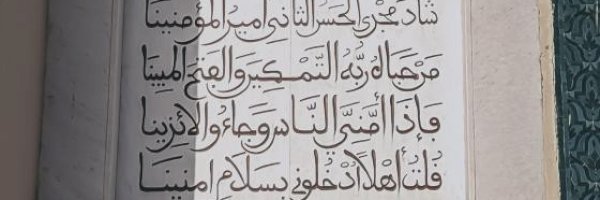 شاد مجدي الحسن الثاني أمير المؤمنينا
من حباه ربه التمكين والفتح المبينا
فإذا أمني الناس وجاءوا لائزينا
قلت أهلا أدخلوني بسلام امنينا